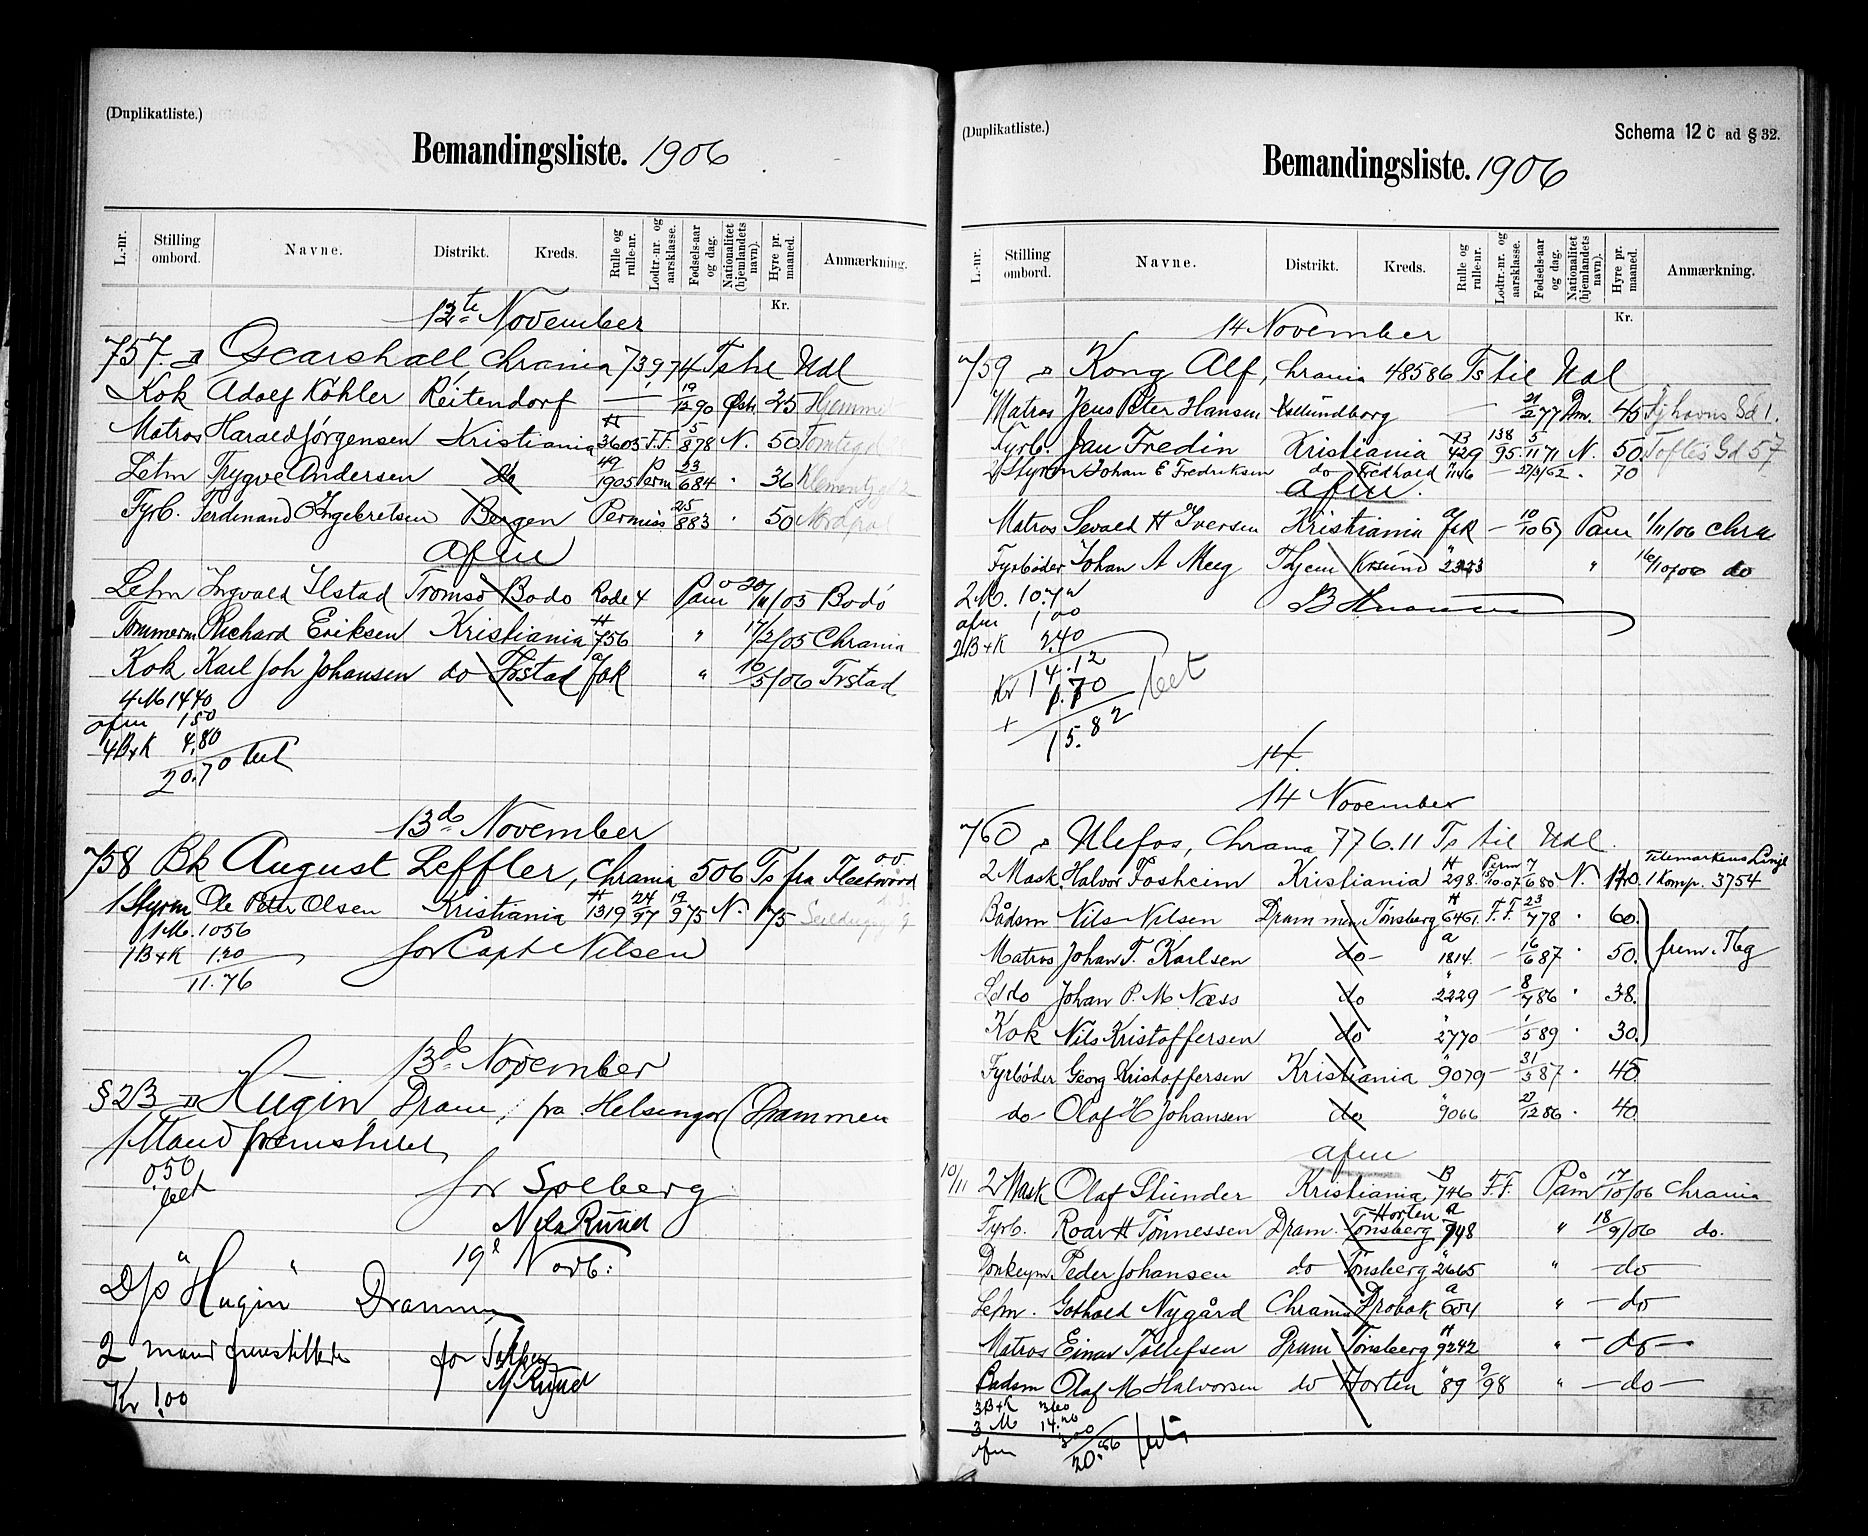 (Duplikatliste.)
Bemandingsliste. 1906
L.-nr. Stilling ombord. Navne. Distrikt. Kreds. Rulle og rulle-nr. Lodtr.-nr. og aarsklasse. Fødsels-aar og dag. Nationalitet (hjemlandets navn). Hyre pr. maaned. Anmærkning.
Kr.
13te November
757 Oscarshall, Chrania 739,74 Ts til Udl
Kok Adolf Köhler Reitendorf — 19/12 90 Østr. 25 Hjemme
Matros Harald Jørgensen Kristiania H 3605 F.F. 5/8 78 N. 50
Letm Trygve Andersen do 49 1905 Perm 23/6 84 " 36
Fyrb. Ferdinand O Ingebretsen Bergen Permiss 25/8 83 " 50
Afm
Letm Ingvald Ilstad Tromsø Bodo Rode 4 Pam 20/11/05 Bodó
Tømmerm Richard Eriksen Kristiania H 756 " 17/2/05 Chrania
Kok Karl Joh Johansen do a Jok " 16/5/06 Frstad
4 M 14 40
afm 1 50
4 B+k 4,80
20.70 bet
13de November
758 Bk August Leffler, Chrania 506 Ts fra Fleetwood
1 Styrm Ole Peter Olsen Kristiania H 1319 24/97 19/9 75 N. 75
1 M. 1056
1 B+k 1.20
11.76
for Capt Nilsen
13de November
§ 23 Hugin Dram, fra Helsingør (Drammen
1 Mand fremstillet
0.50
bet
for Solberg
Nils Ruud
19de Novb:
D/s "Hugin" Drammen
2 mand fremstillede
for Solberg
N Ruud
Kr 1.00
(Duplikatliste.)
Schema 12 c ad § 32.
Bemandingsliste. 1906
L.-nr. Stilling ombord. Navne. Distrikt. Kreds. Rulle og rulle-nr. Lodtr.-nr. og aarsklasse. Fødsels-aar og dag. Nationalitet (hjemlandets navn). Hyre pr. maaned. Anmærkning.
Kr.
14 November
759 Kong Alf, Chrania 485 86 Ts til Udl
Matros Jens Peter Hansen Kallundborg — 21/2 77 Dm. 45
Fyrb. Jan Fredin Kristiania B 429 138/95 5/11 71 N. 50 Toftes Gd 57
2 Styrm Johan E Fredriksen do Fredhald 746 — 27/4/62 " 70
Afm.
Matros Sevald H Iversen Kristiania a Jok — 10/10 67 Pam 1/11/06 Chra
Fyrbøder Johan A Meeg Thjem Krsund " 2323 " 16/10/06 do
2 M. 10.72
afm 1.00
2 B+k 2.40
Kr 14.12
+ 1.70
15.82 bet
14.
14 November
760 Ulefos, Chrania 776.11 Ts til Udl.
2 Mask. Halvor Fosheim Kristiania H 298. Perm 15/10.07 7/6 80 N. 120. Telemarkens Linjeb 1 Komp. 3754
Bådsm Nils Nilsen Dram Tønsberg H 6461. F.F 23/7 78 " 60.
Matros Johan T. Karlsen do - a 1814. — 16/6 87 " 50. frem. Tbg
Ld do Johan P. M Næss do " 2229 — 8/7 86 " 38.
Kok Nils Kristoffersen do " 2770 — 1/5 89 " 30.
Fyrbøder Georg Kristoffersen Kristiania " 9079 — 31/3 87 " 45
do Olaf H Johansen do " 9066 27/12 86 " 40.
afm
10/11 2 Mask Olaf Stünder Kristiania B 746 F.F. Påm 17/10/06 Chrania
Fyrb. Roar H Tønnessen Dram. Tønsberg Horten a 748 " 18/9/06 do.
Donkeym. Peder Johansen do Tønsberg " 2665 " — do —
Letm. Gothold Nygård Chrania Drobak a 604 " — do —
Matros Einar Tollefsen Dram Tønsberg H 9242 " — do —
Badsm Olaf M Halvorsen do Horten " 89 9/98 " — do —
3 B+k 3 60
3 M 14.26
afm 3 00
20.86 bet